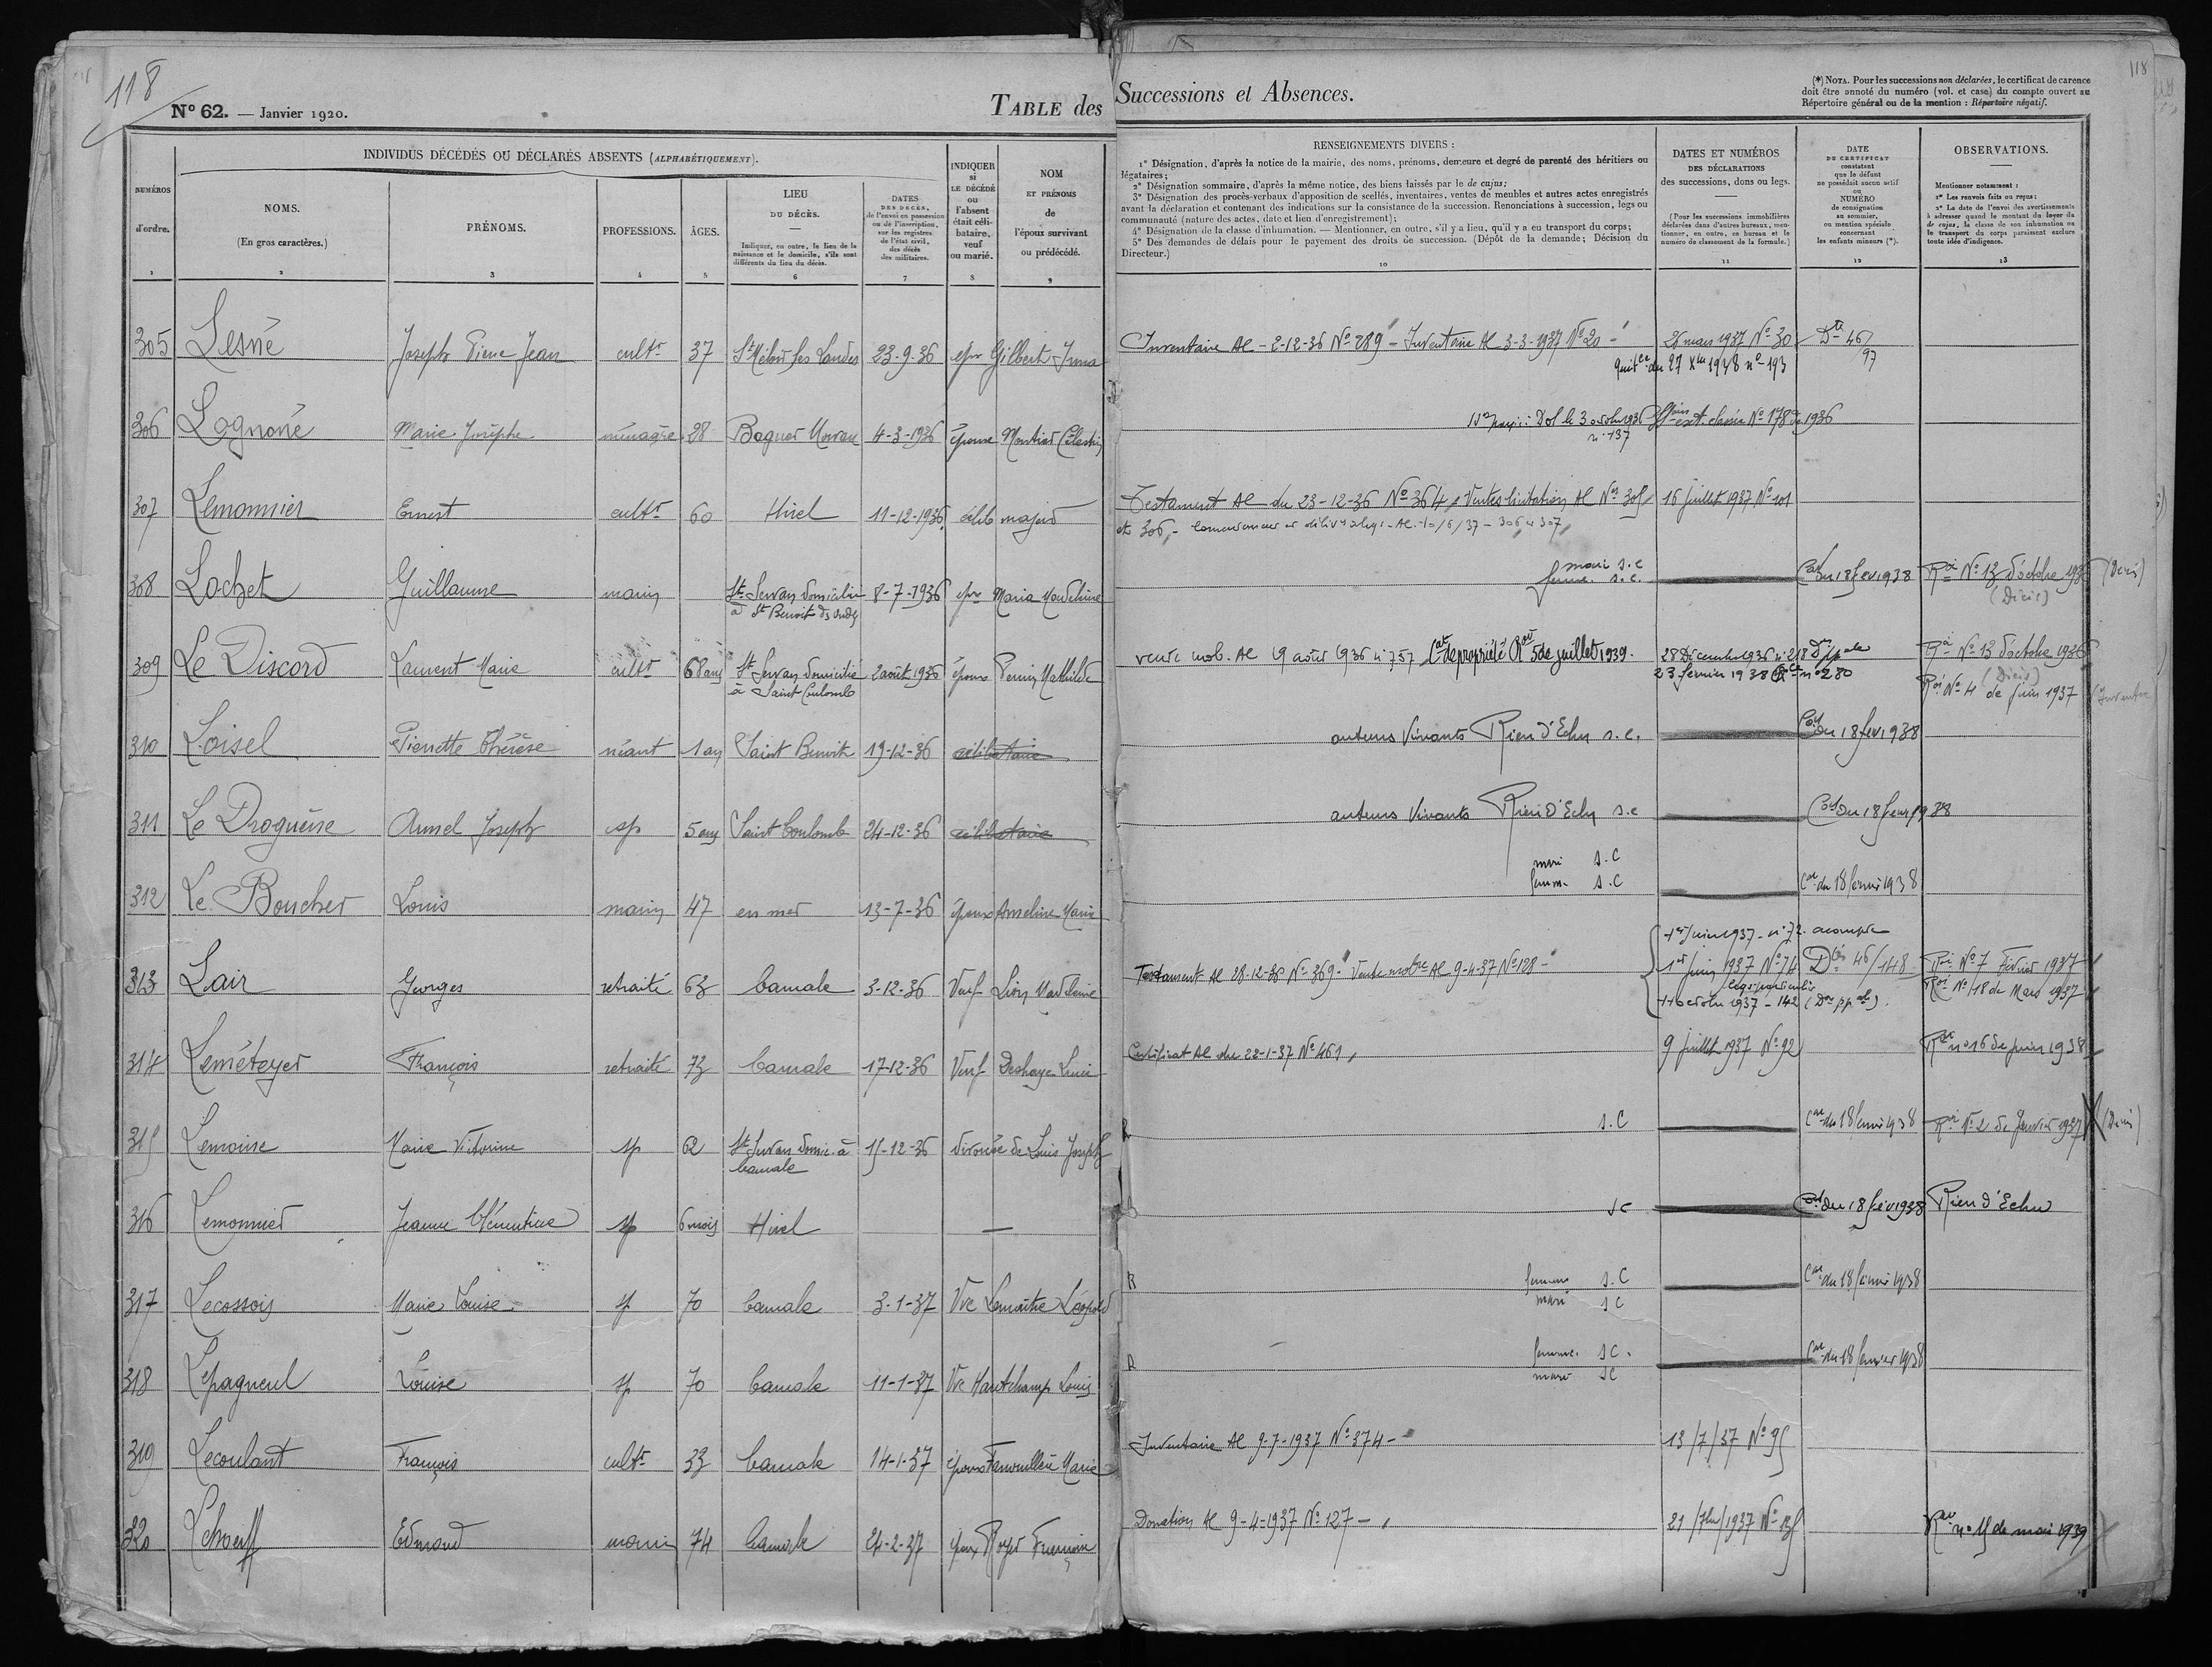 118
118
N° 62. — Janvier 1920.
TABLE des Successions et Absences.
(*) NOTA. Pour les successions non déclarées, le certificat de carence
doit être annoté du numéro (vol. et case) du compte ouvert au
Répertoire général ou de la mention : Répertoire négatif.
INDIVIDUS DÉCÉDÉS OU DÉCLARÉS ABSENTS (ALPHABÉTIQUEMENT).
NUMÉROS
d'ordre.
1
NOMS.
(En gros caractères.)
2
PRÉNOMS.
3
PROFESSIONS.
4
ÂGES.
5
LIEU
DU DÉCÈS.
Indiquer, en outre, le lieu de la
naissance et le domicile, s'ils sont
différents du lieu du décès.
6
DATES
DES DÉCÈS,
de l'envoi en possession
ou de l'inscription,
sur les registres
de l'état civil,
des décès
des militaires.
7
INDIQUER
si
LE DÉCÉDÉ
ou
l'absent
était céli-
bataire,
veuf
ou marié.
8
NOM
ET PRÉNOMS
de
l'époux survivant
ou prédécédé.
9
RENSEIGNEMENTS DIVERS :
1° Désignation, d'après la notice de la mairie, des noms, prénoms, demeure et degré de parenté des héritiers ou
légataires;
2° Désignation sommaire, d'après la même notice, des biens laissés par le de cujus;
3° Désignation des procès-verbaux d'apposition de scellés, inventaires, ventes de meubles et autres actes enregistrés
avant la déclaration et contenant des indications sur la consistance de la succession. Renonciations à succession, legs ou
communauté (nature des actes, date et lieu d'enregistrement);
4° Désignation de la classe d'inhumation. — Mentionner, en outre, s'il y a lieu, qu'il y a eu transport du corps;
5° Des demandes de délais pour le payement des droits de succession. (Dépôt de la demande; Décision du
Directeur.)
10
DATES ET NUMÉROS
DES DÉCLARATIONS
des successions, dons ou legs.
(Pour les successions immobilières
déclarées dans d'autres bureaux, men-
tionner, en outre, ce bureau et le
numéro de classement de la formule.)
11
DATE
DU CERTIFICAT
constatant
que le défunt
ne possédait aucun actif
ou
NUMÉRO
de consignation
au sommier,
ou mention spéciale
concernant
les enfants mineurs (*).
12
OBSERVATIONS.
Mentionner notamment :
1° Les renvois faits ou reçus;
2° La date de l'envoi des avertissements
à adresser quand le montant du loyer du
de cujus, la classe de son inhumation ou
le transport du corps paraissent exclure
toute idée d'indigence.
13
305 Lesné Joseph Pierre Jean cultr 37 St Méloir des Landes 23-9-36 epx Gilbert Irma Inventaire Al - 2-12-36 N° 289 - Inventaire Al 3-3-1937 N° 20 - 26 mars 1937 N° 30 Dte 46/97
27 Xbre 1938 n° 193
306 Lognoné Marie Josèphe ménagère 28 Baguer Morvan 4-3-1936 épouse Montier Célestin Dol le 3 octobre 1936 N° 178 de 1936
n° 137
307 Lemonnier Ernest cultr 60 Hirel 11-12-1936 célib majeur Testament Al du 23-12-36 N° 364, Ventes licitation Al Nos 305 16 juillet 1937 N° 101
et 306, - Al. 10/6/37 - 306 & 307
308 Lochet Guillaume marin St Servan domicilié 8-7-1936 epx Maria Madeleine mari s.c Cat du 18 fev 1938 Roi N° 13 d'octobre 1936 (Décès)
à St Benoit des Ondes femme s.c. (Décès)
309 Le Discord Laurent Marie cultr 68 ans St Servan domicilié 2 août 1936 époux Perrin Mathilde vente mob. Al 19 août 1936 n° 757 Cat de propriété Roi 5 de juillet 1939. 28 Décembre 1936 n° 218 Roi N° 13 d'octobre 1936
à Saint Coulomb 23 février 1938 n° 280 (Décès)
Roi N° 4 de juin 1937 (Inventre
310 Loisel Pierrette Thérèse néant 1 an Saint Benoit 19-12-36 célibataire auteurs vivants Rien d'Echu s.c. Cat du 18 fev 1938
311 Le Droguène Armel Joseph sp 5 ans Saint Coulomb 24-12-36 célibataire auteurs vivants Rien d'Echu s.c Cat du 18 fevr 1938
312 Le Boucher Louis marin 47 en mer 13-7-36 époux Anseline Marie mari s.c Cat du 18 février 1938
femme s.c
1er Juin 1937 - n° 72 acompte
313 Lair Georges retraité 63 Cancale 3-12-36 Veuf Lion Madeleine Testament Al 28-12-36 N° 369 - Vente mobre Al 9-4-37 N° 128 - 1er juin 1937 N° 74 Dtes 46/148 Roi N° 7 Février 1937
legs particulier Roi N° 18 de Mars 1937
11 octobre 1937 - 142 (Don ppale).
314 Lemétayer François retraité 73 Cancale 17-12-36 Veuf Deshaye Certificat Al du 22-1-37 N° 461, 9 juillet 1937 N° 92 Roi n° 16 de juin 1938
315 Lemoine Marie Victorine sp 62 St Servan domic. à 15-12-36 divorcée de Louis Joseph s.c Cat du 18 février 1938 Roi N° 2 de Janvier 1937 (Décès)
Cancale
316 Lemonnier Jeanne Clémentine sp 6 mois Hirel — sc Cat du 18 fév 1938 Rien d'Echu
317 Lecossois Marie Louise sp 70 Cancale 3-1-37 Vve Lemaitre Léopold R femme s.c Cat du 18 février 1938
mari s c
318 Lepagneul Louise sp 70 Cancale 11-1-37 Vve Hautchamp Louis R femme. s c. Cat du 18 février 1938
mari s c
319 Lecoulant François cultr 33 Cancale 14-1-37 époux Fenouillère Marie Inventaire Al 9-7-1937 N° 374 - 13/7/37 N° 95
320 Lehoerff Edmond marin 74 Cancale 24-2-37 époux Roger Donation Al 9-4-1937 N° 127 - 21/7bre/1937 N° 135 Roi n° 15 de mai 1939